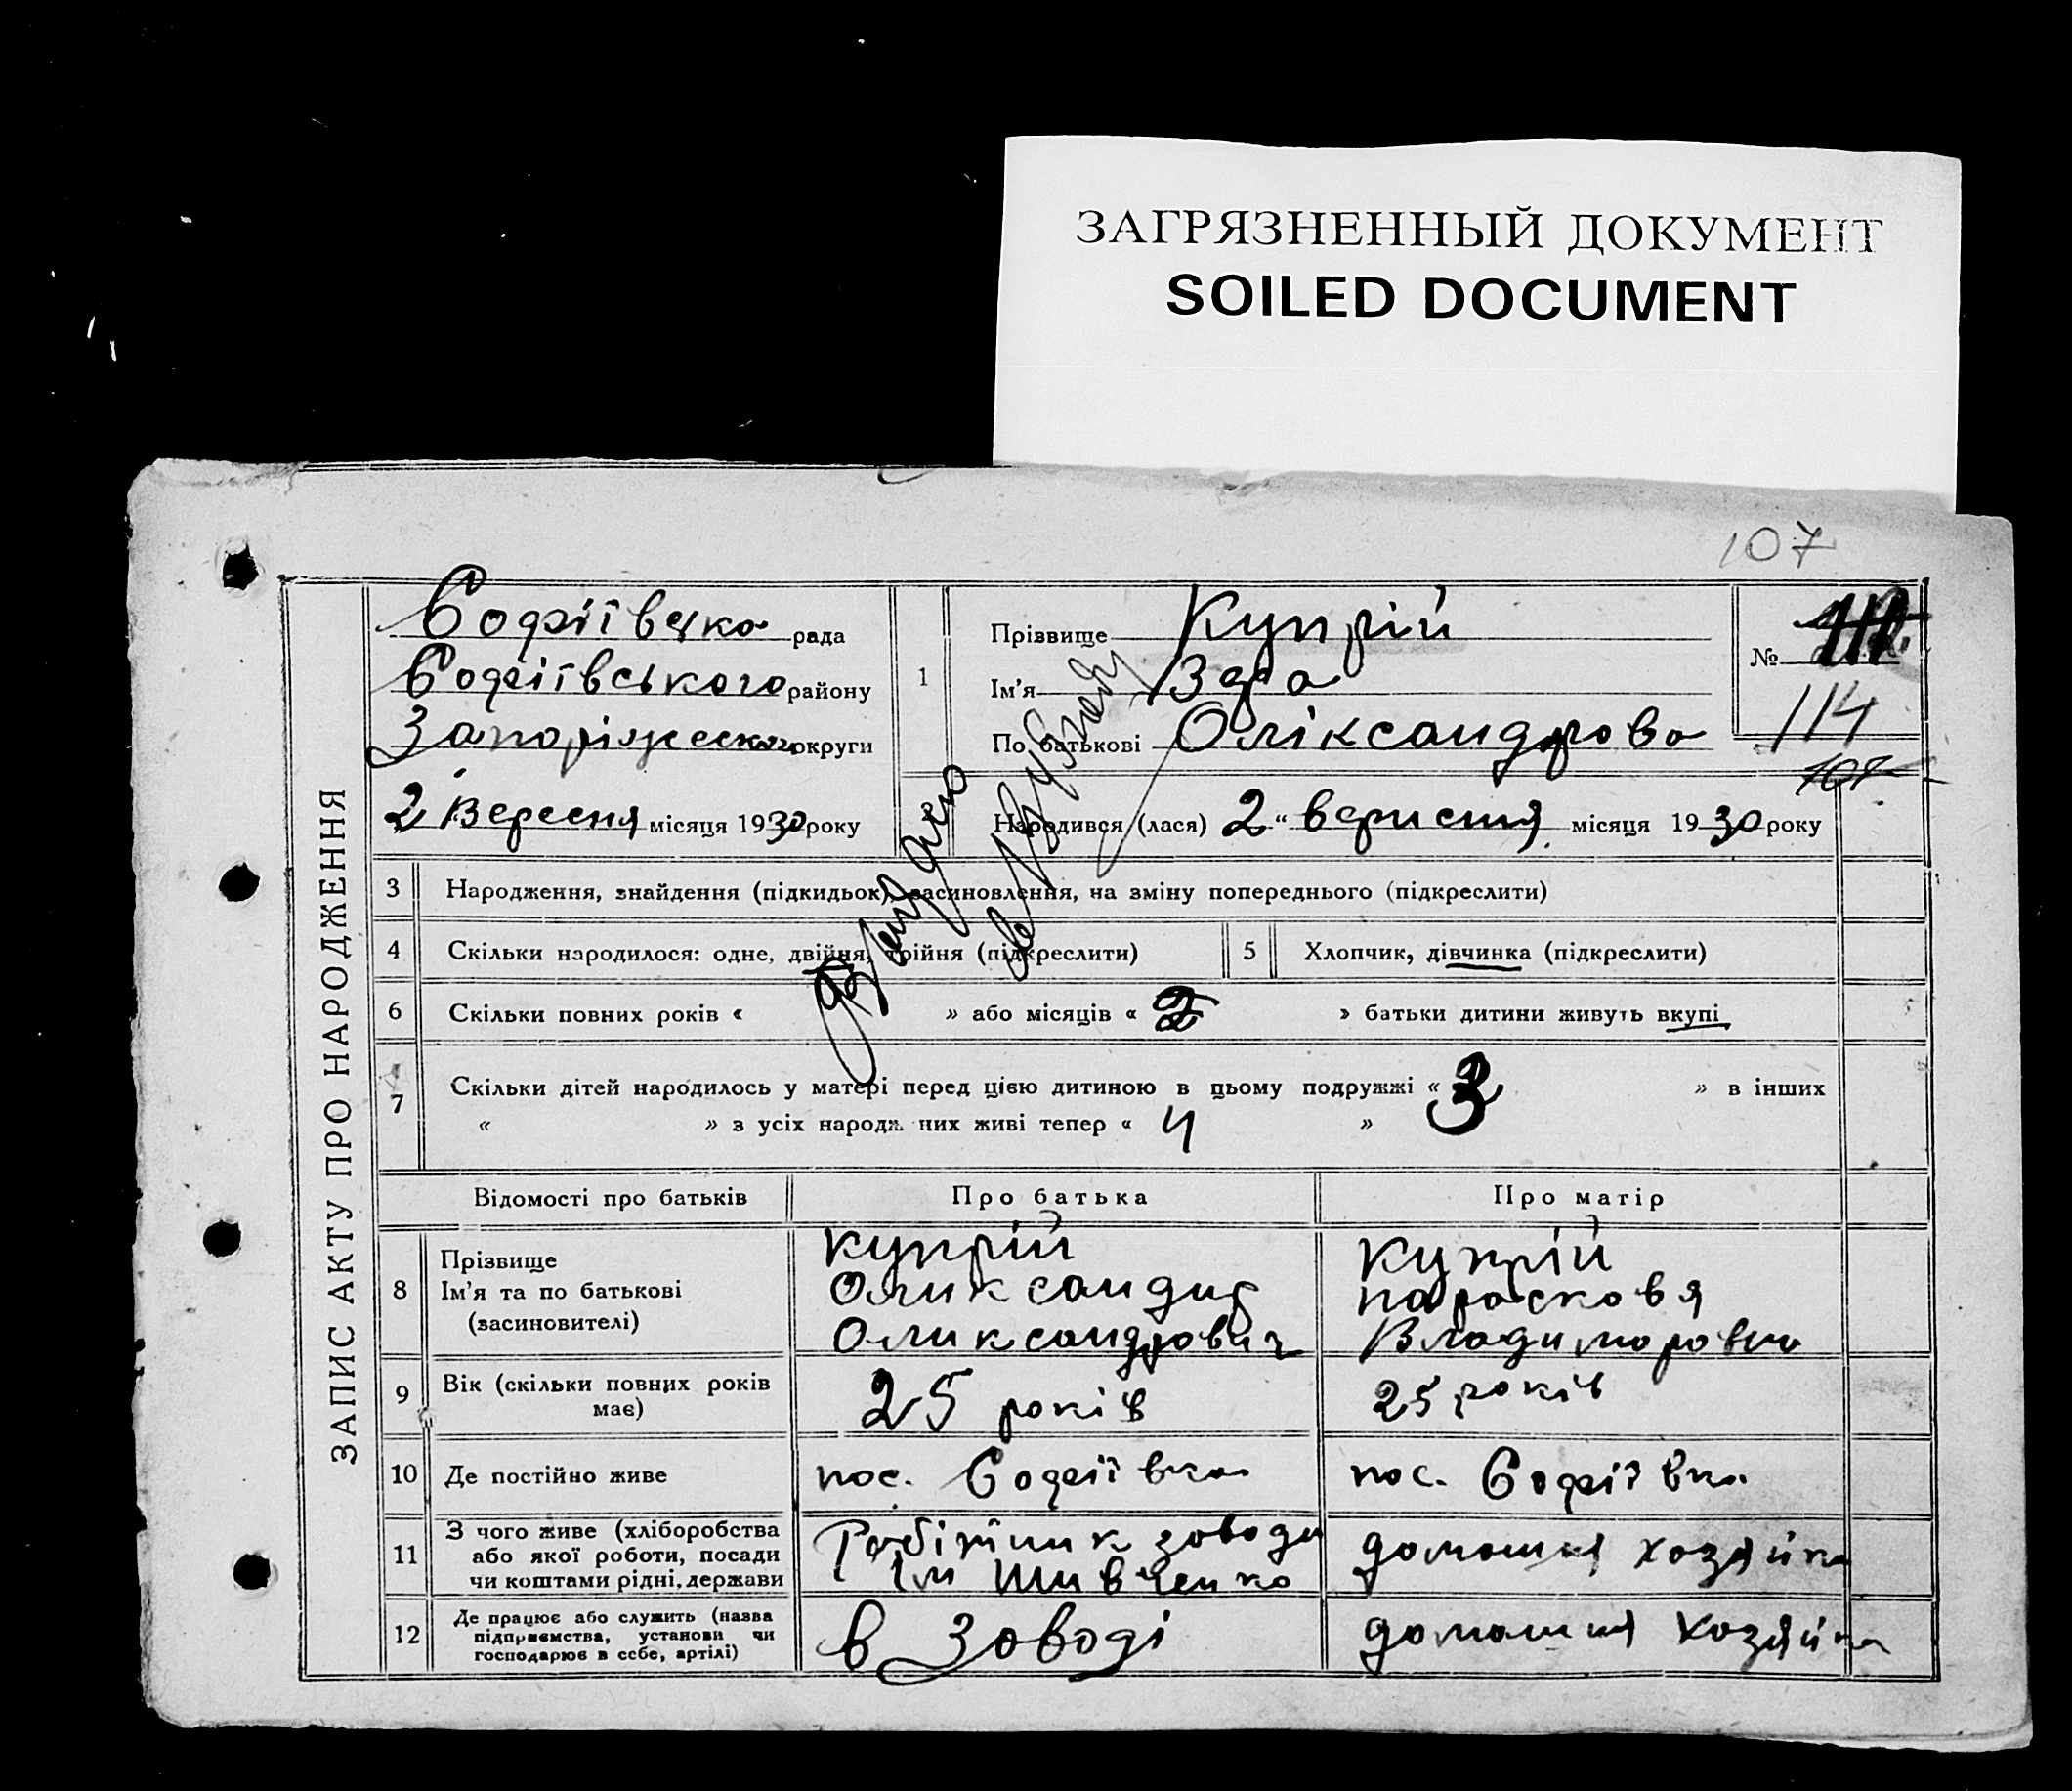 ЗАГРЯЗНЕННЫЙ ДОКУМЕНТ
SOILED DOCUMENT
107
ЗАПИС АКТУ ПРО НАРОДЖЕННЯ
Софіївска рада
Софіївського району
округи
2 Вересня місяця 1930 року
1
Прізвище Купрій
Ім'я Вера
По батькові Оліксандрова
№
114
Народився (лася) 2 "верисня місяця 1930 року
3 Народження, знайдення (підкидьок), засиновлення, на зміну попереднього (підкреслити)
4 Скільки народилося: одне, двійня, трійня (підкреслити) 5 Хлопчик, дівчинка (підкреслити)
6 Скільки повних років « » або місяців « » батьки дитини живуть вкупі
7 Скільки дітей народилось у матері перед цією дитиною в цьому подружжі « 3 » в інших
« » з усіх народж них живі тепер « 4 »
Відомості про батьків Про батька Про матір
8 Прізвище Купрій Купрій
Ім'я та по батькові Парасковя
(засиновителі) Олександрович
9 Вік (скільки повних років має) 25 років 25 років
10 Де постійно живе пос. Софіївка пос. Софіївка
11 З чого живе (хліборобства Робітник заводу домашня хозяйка
або якої роботи, посади Ім Шивченко
чи коштами рідні, держави
12 Де працює або служить (назва в заводі домашня хозяйка
підприємства, установи чи
господарює в себе, артілі)